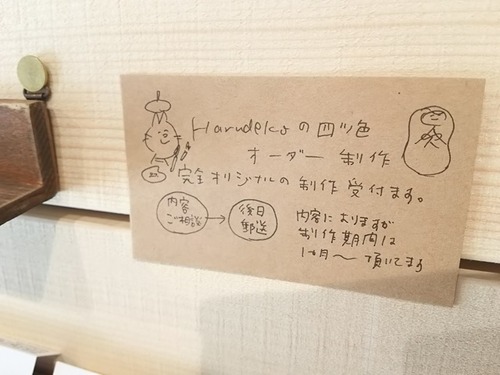 Harudekoの四ツ色
オーダー 制作
完全オリジナルの制作受付ます。
内容
ご相談
→
後日
郵送
内容によりますが
制作期間は
1ヵ月〜頂いてます